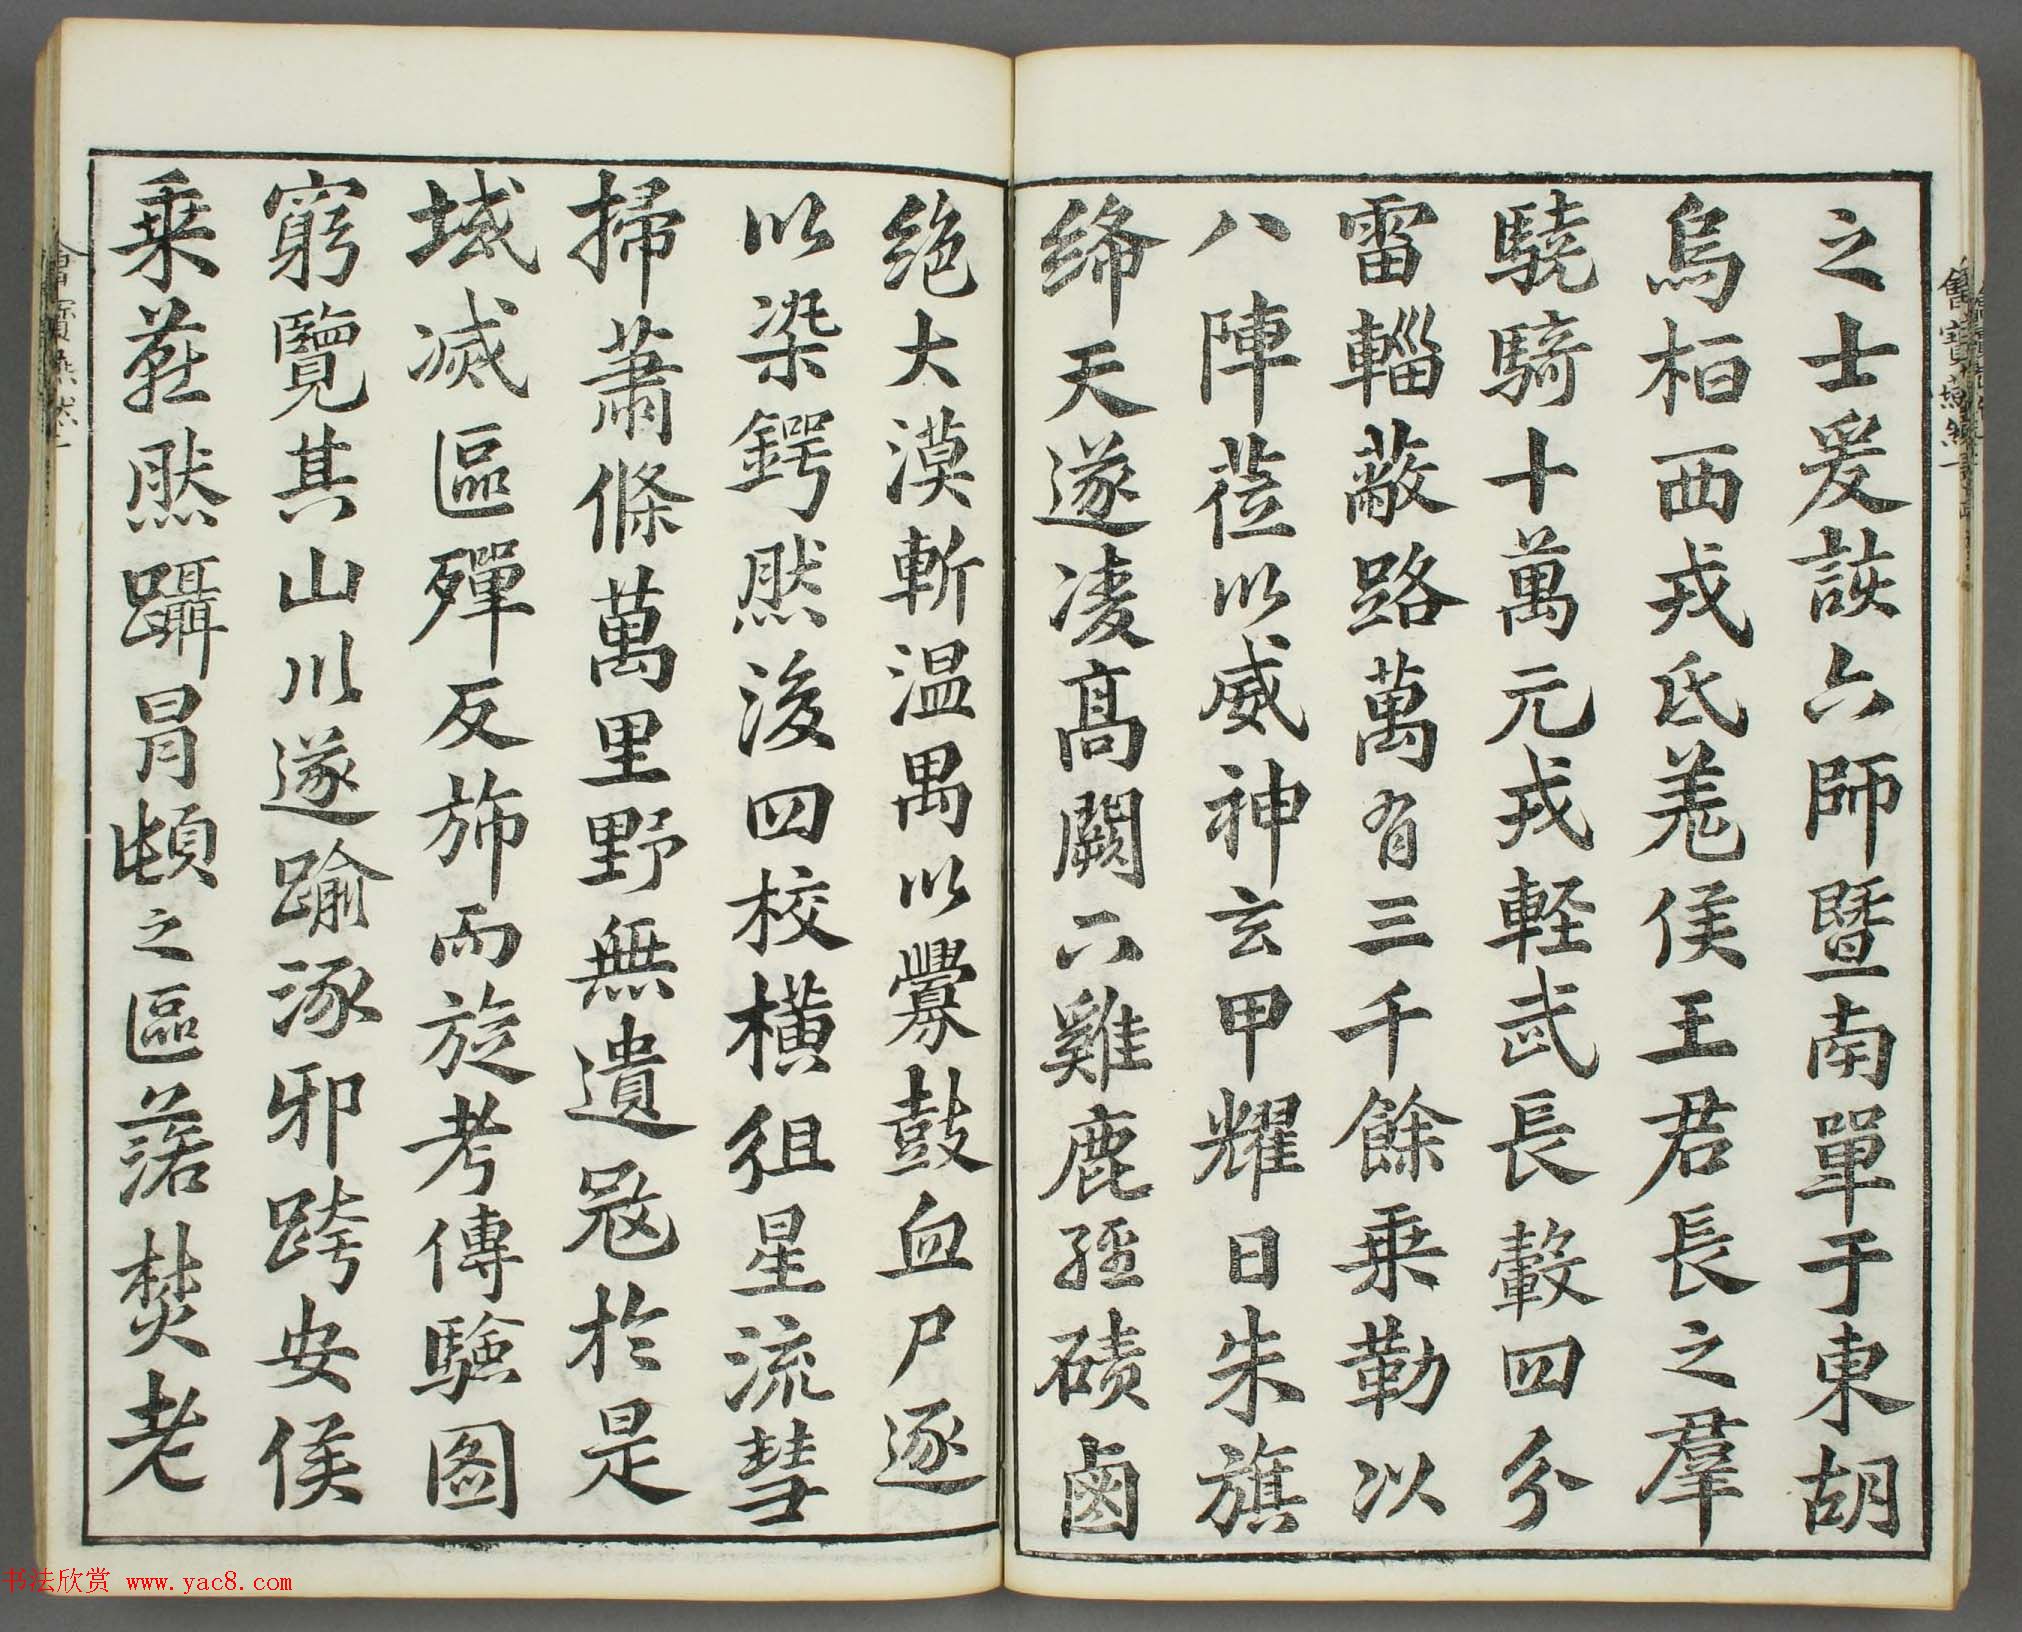 之士爰該六師暨南單于東胡
烏桓西戎氐羌侯王君長之羣
驍騎十萬元戎輕武長轂四分
雷輜蔽路萬有三千餘乘勒以
八陣莅以威神玄甲耀日朱旗
絳天遂凌高闕下雞鹿經磧鹵
绝大漠斬温禺以釁鼓血尸逐
以染鍔然後四校橫徂星流彗
掃蕭條萬里野無遺寇於是
域滅區殫反斾而旋考傳驗圖
窮覽其山川遂踰涿邪跨安侯
乘燕然躡冒頓之區落焚老
书法欣赏 www.yac8.com